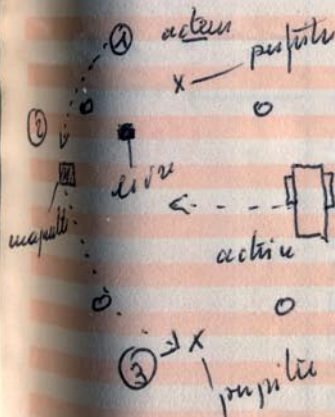 1 acteur
x pupitre
2
livre
actrice
3 x
pupitre